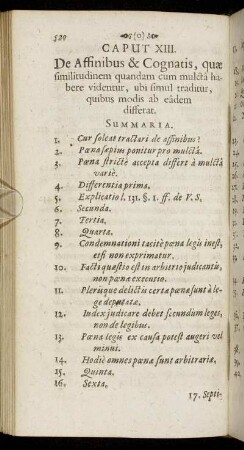 520 (o)
CAPUT XIII.
De Affinibus & Cognatis, quæ
similitudinem quandam cum mulctâ ha-
bere videntur, ubi simul traditur,
quibus modis ab eâdem
differat.
SUMMARIA.
1. Cur soleat tractari de affinibus?
2. Pœna sæpius ponitur pro mulctâ.
3. Pœna strictè accepta differt à mulctâ
variè.
4. Differentia prima.
5. Explicatio l. 131. §. 1. ff. de V. S.
6. Secunda.
7. Tertia.
8. Quarta.
9. Condemnationi tacitè pœna legis inest,
etsi non exprimatur.
10. Facti quæstio est in arbitrio judicantũ,
non pœnæ executio.
11. Plerisque delictis certa pœna sunt à le-
ge deputatæ.
12. Index judicare debet secundum leges,
non de legibus.
13. Pœna legis ex causa potest augeri vel
minui.
14. Hodiè omnes pœnæ sunt arbitrariæ.
15. Quinta.
16. Sexta.
17. Septi-